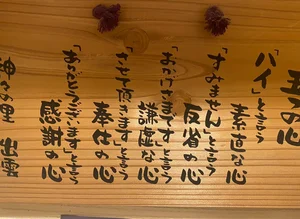 五つの心
「ハイ」と言う
素直な心
「すみません」と言う
反省の心
「おかげさまです」と言う
謙虚な心
「させて頂きます」と言う
奉仕の心
「ありがとうございます」と言う
感謝の心
神々の里 出雲